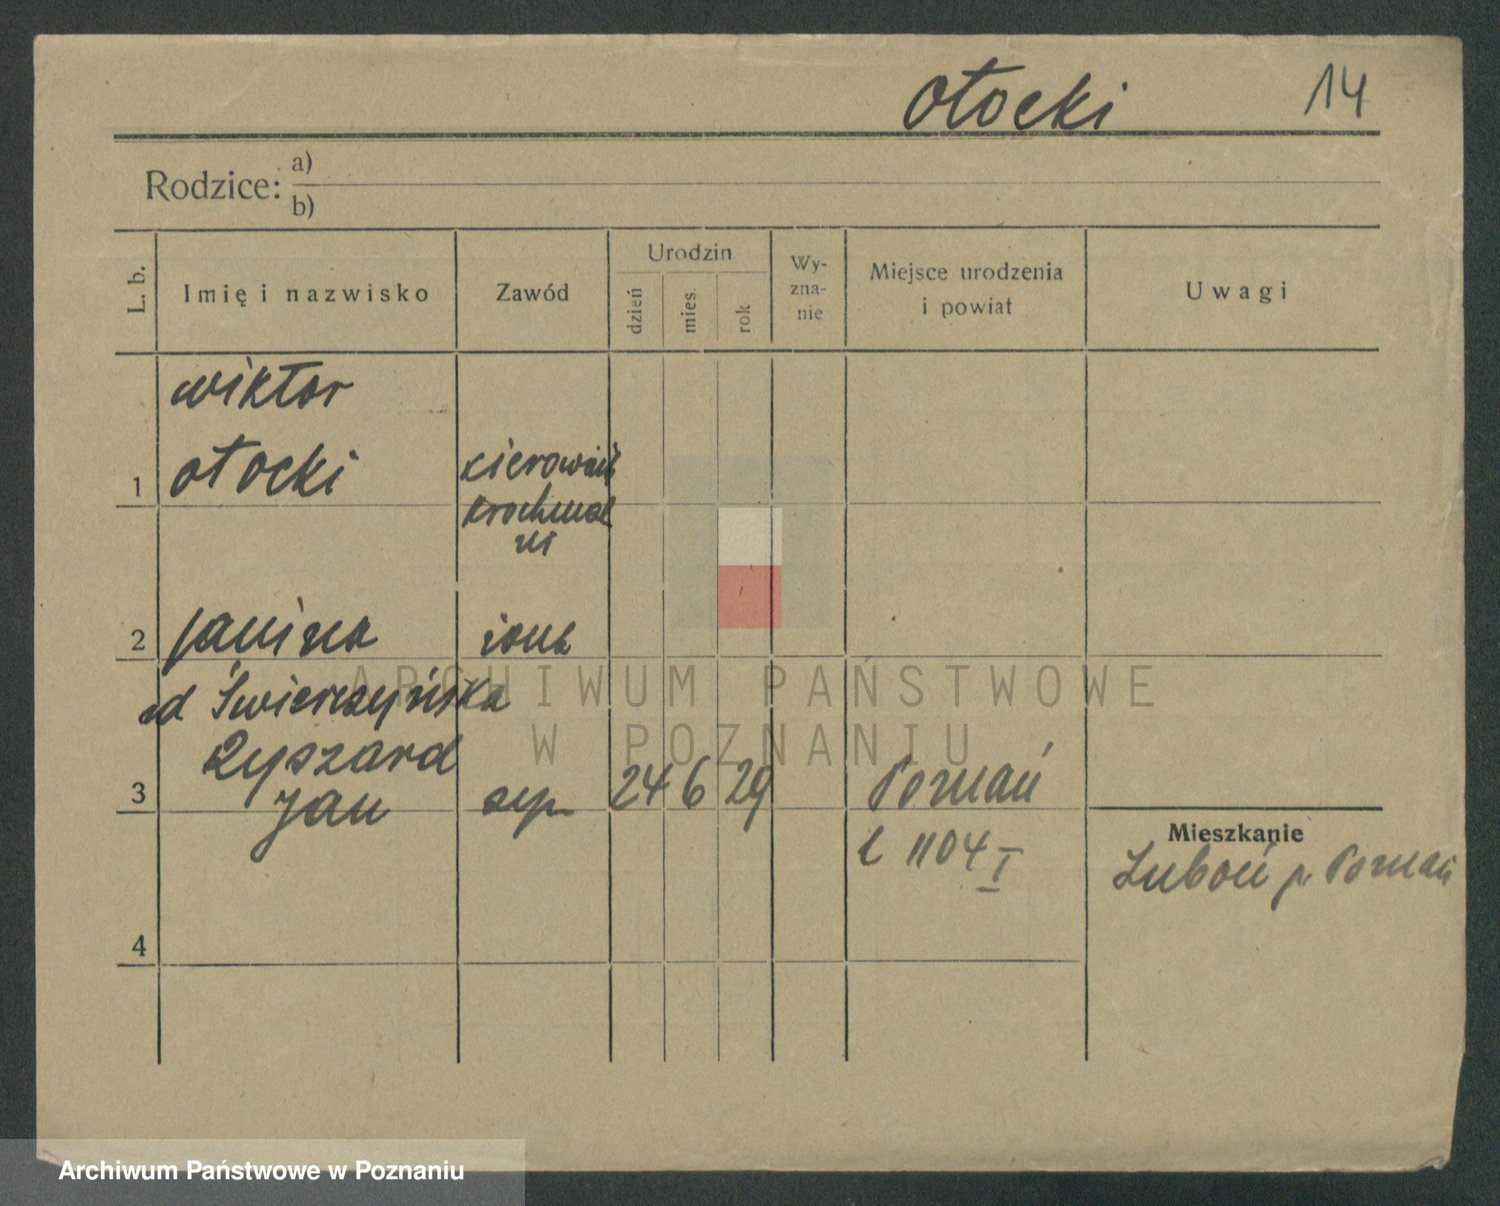 Otocki 14
Rodzice: a)
b)
L. b. Imię i nazwisko Zawód Urodzin dzień mies rok Wy-zna-nie Miejsce urodzenia i powiat Uwagi
Wiktor
1 Otocki
krochmal
ni
2 Janina żona
od Świerczyńska
Ryszard
3 Jan syn 24 6 29 Poznań
Mieszkanie
Ł 1104 I Luboń p. Poznań
4
ARCHIWUM PAŃSTWOWE
W POZNANIU
Archiwum Państwowe w Poznaniu